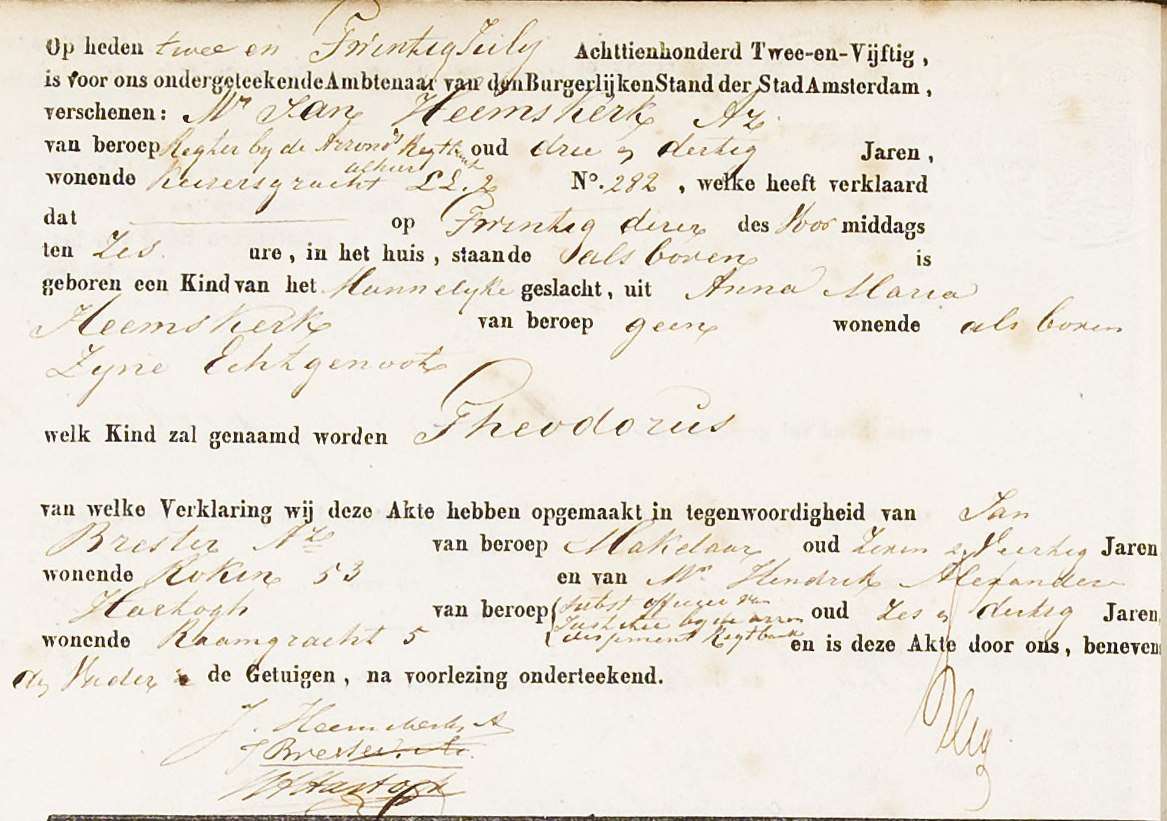 Op heden twee en Twintig July Achttienhonderd Twee-en-Vijftig,
is voor ons ondergeteekende Ambtenaar van den Burgerlijken Stand der Stad Amsterdam,
verschenen: Mr Jan Heemskerk Az.
van beroep Regter by de Arrond. Regtbank oud drie en dertig Jaren,
alhier
wonende Keisersgracht LL. 2 No. 282, welke heeft verklaard
dat op Twintig dezer des Voor middags
ten Zes ure, in het huis, staande als boven is
geboren een Kind van het Mannelyke geslacht, uit Anna Maria
Heemskerk van beroep geen wonende als boven
Zyne Echtgenoote
welk Kind zal genaamd worden Theodorus
van welke Verklaring wij deze Akte hebben opgemaakt in tegenwoordigheid van Jan
Brester Az van beroep Makelaar oud Zeven en Veertig Jaren
wonende Rokin 53 en van Mr. Hendrik Alexander
Hartogh van beroep Subst officier van
Justitie by de arron
dissement Regtbank oud Zes en dertig Jaren,
wonende Raamgracht 5 en is deze Akte door ons, beneven
den Vader en de Getuigen, na voorlezing onderteekend.
J. Heemskerk A
J Brester Az.
HAHartogh